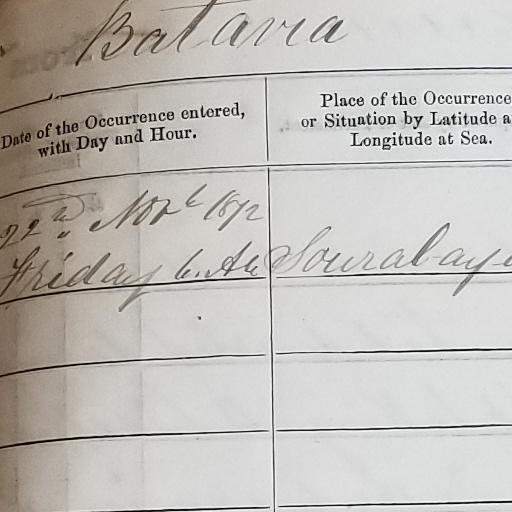 Batavia
Date of the Occurrence entered,
with Day and Hour.
Place of the Occurrence
or Situation by Latitude a
Longitude at Sea.
22nd Novr 1872
Friday 6. AM Sourabaya